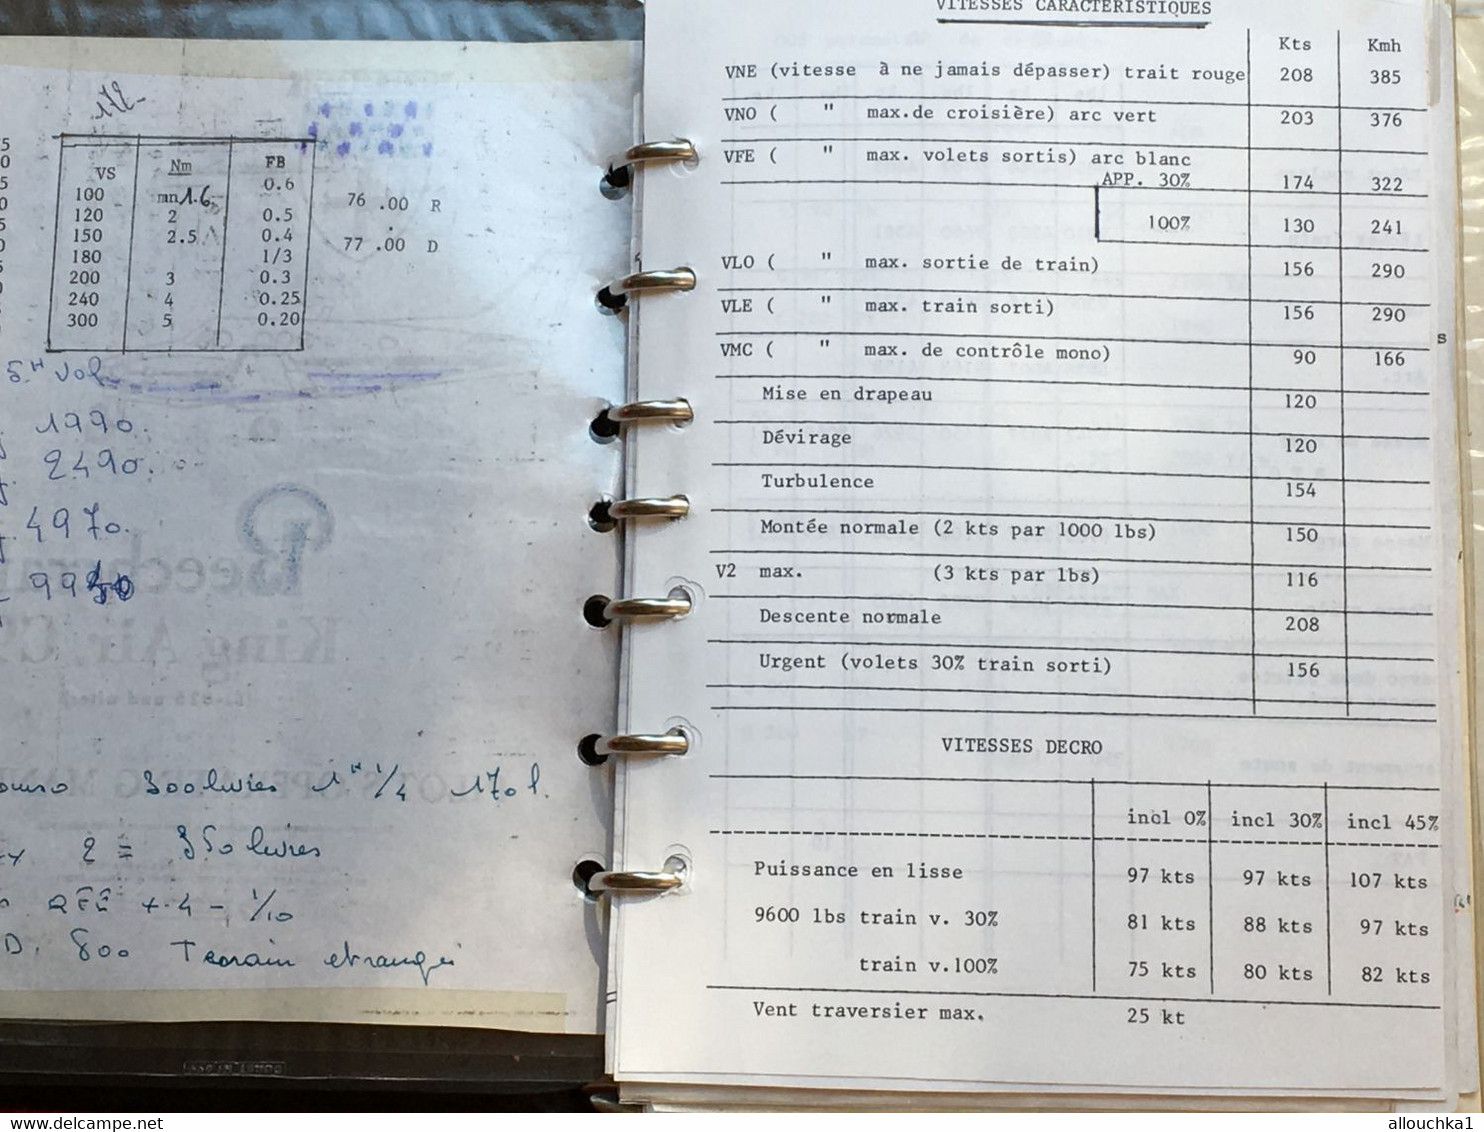 VS Nm FB
100 mn 1.6 0.6
120 2 0.5
150 2.5 0.4
180 1/3
200 3 0.3
240 4 0.25
300 5 0.20
76 .00 R
77 .00 D
vol
1990.
2490.
4970.
300 livres 1 H 1/4 170 l.
2 = 350 livres
QFE + 4 - 1/10
D. 800 Terrain etranger
VITESSES CARACTERISTIQUES
Kts Kmh
VNE (vitesse à ne jamais dépasser) trait rouge 208 385
VNO ( " max.de croisière) arc vert 203 376
VFE ( " max. volets sortis) arc blanc
APP. 30% 174 322
100% 130 241
VLO ( " max. sortie de train) 156 290
VLE ( " max. train sorti) 156 290
VMC ( " max. de contrôle mono) 90 166
Mise en drapeau 120
Dévirage 120
Turbulence 154
Montée normale (2 kts par 1000 lbs) 150
V2 max. (3 kts par lbs) 116
Descente normale 208
Urgent (volets 30% train sorti) 156
VITESSES DECRO
incl 0% incl 30% incl 45%
Puissance en lisse 97 kts 97 kts 107 kts
9600 lbs train v. 30% 81 kts 88 kts 97 kts
train v.100% 75 kts 80 kts 82 kts
Vent traversier max. 25 kt
s
delcampe.net
allouchka1